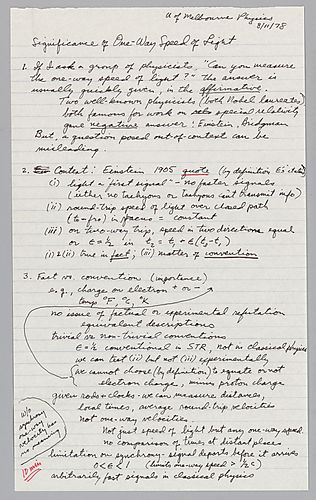 U of Melbourne Physics
8/11/78
Significance of One-Way Speed of Light
1. If I ask a group of physicists, "Can you measure
the one-way speed of light?" the answer is
usually, quickly given, in the affirmative.
Two well-known physicists (both Nobel laureates)
both famous for work on special relativity
gave negative answer: Einstein, Bridgman.
But, a question posed out-of-context can be
misleading.
2. Context: Einstein 1905 quote (by definition E's italics)
(i) light a first signal – no faster signals
(either no tachyons or tachyons can't transmit info)
(ii) round-trip speed of light over closed path
(to-fro) in vacuo = constant
(iii) or two-way trip, speed in two directions equal
or ε=½ in t₂ = t₁ + ε(t₃-t₁)
(i) & (ii) true in fact; (iii) matter of convention
3. Fact vs. convention (importance)
e.g., charge on electron + or -
temp °F, °C, °K
no issue of factual or experimental refutation
equivalent descriptions
trivial vs non-trivial conventions
ε=½ conventional in STR, not in classical physics
we can test (ii) but not (iii) experimentally
we cannot choose (by definition) to equate or not
electron charge, minus proton charge
given rods & clocks: we can measure distances,
local times, average round-trip velocities
Not one-way velocities
Not just speed of light but any one-way speed.
no comparison of times at distant place
limitation on synchrony: signal departs before it arrives
0<ε<1 (limits one-way speed > ½c)
arbitrarily fast signals in classical physics
w/o
synchrony
one-way
velocity has
no meaning
10 min